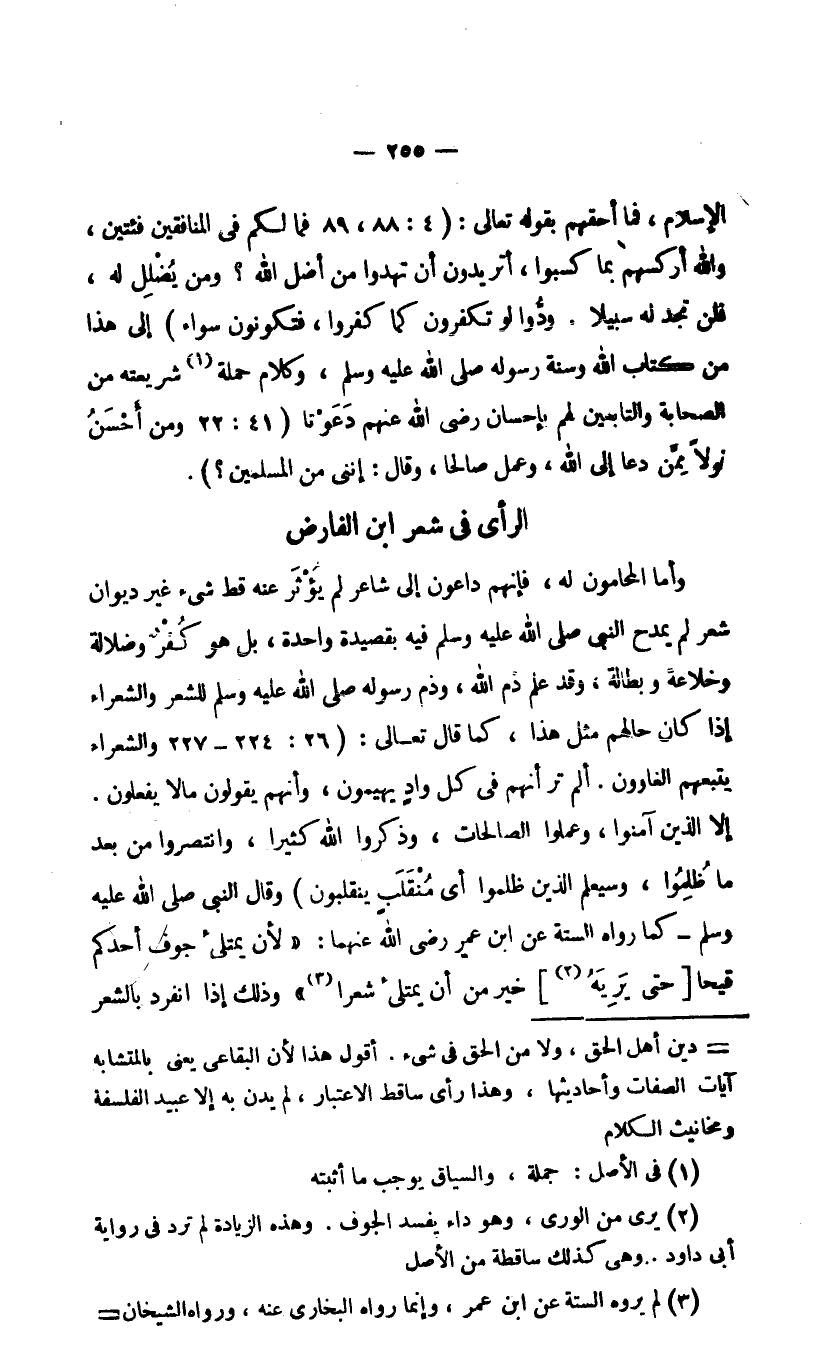 — ٢٥٥ —
الإسلام ، فما أحقهم بقوله تعالى : ( ٤ : ٨٨ ، ٨٩ فما لكم فى المنافقين فئتين ،
والله أركسهم بما كسبوا ، أتريدون أن تهدوا من أضل الله ؟ ومن يُضْلِل له ،
فلن تجد له سبيلا . ودُّوا لو تكفرون كما كفروا ، فتكونون سواء ) إلى هذا
من كتاب الله وسنة رسوله صلى الله عليه وسلم ، وكلام حملة (١) شريعته من
الصحابة والتابعين لهم بإحسان رضى الله عنهم دَعَوْنا ( ٤١ : ٣٣ ومن أَحْسَنُ
قولاً مِمَّن دعا إلى الله ، وعمل صالحا ، وقال : إننى من المسلمين ؟ ) .
الرأى فى شعر ابن الفارض
وأما المحامون له ، فإنهم داعون إلى شاعر لم يُؤْثَر عنه قط شىء غير ديوان
شعر لم يمدح النبى صلى الله عليه وسلم فيه بقصيدة واحدة ، بل هو كُفْر وضلالة
وخلاعة وبطالة ، وقد علم ذم الله ، وذم رسوله صلى الله عليه وسلم للشعر والشعراء
إذا كان حالهم مثل هذا ، كما قال تعـالى : ( ٢٦ : ٢٢٤ – ٢٢٧ والشعراء
يتبعهم الغاوون . ألم تر أنهم فى كل وادٍ يهيمون ، وأنهم يقولون مالا يفعلون .
إلا الذين آمنوا ، وعملوا الصالحات ، وذكروا الله كثيرا ، وانتصروا من بعد
ما ظُلِمُوا ، وسيعلم الذين ظلموا أى مُنْقَلَبٍ ينقلبون ) وقال النبى صلى الله عليه
وسلم – كما رواه الستة عن ابن عمر رضى الله عنهما : « لأن يمتلىء جوف أحدكم
قيحا [ حتى يَرِيَهُ (٢) ] خير من أن يمتلىء شعرا (٣) » وذلك إذا انفرد بالشعر
= دين أهل الحق ، ولا من الحق فى شىء . أقول هذا لأن البقاعى يعنى بالمتشابه
آيات الصفات وأحاديثها ، وهذا رأى ساقط الاعتبار ، لم يدن به إلا عبيد الفلسفة
ومخانيث الكلام
(١) فى الأصل : جملة ، والسياق يوجب ما أثبته
(٢) يرى من الورى ، وهو داء يفسد الجوف . وهذه الزيادة لم ترد فى رواية
أبى داود .. وهى كذلك ساقطة من الأصل
(٣) لم يروه الستة عن ابن عمر ، وإنما رواه البخارى عنه ، ورواه الشيخان =